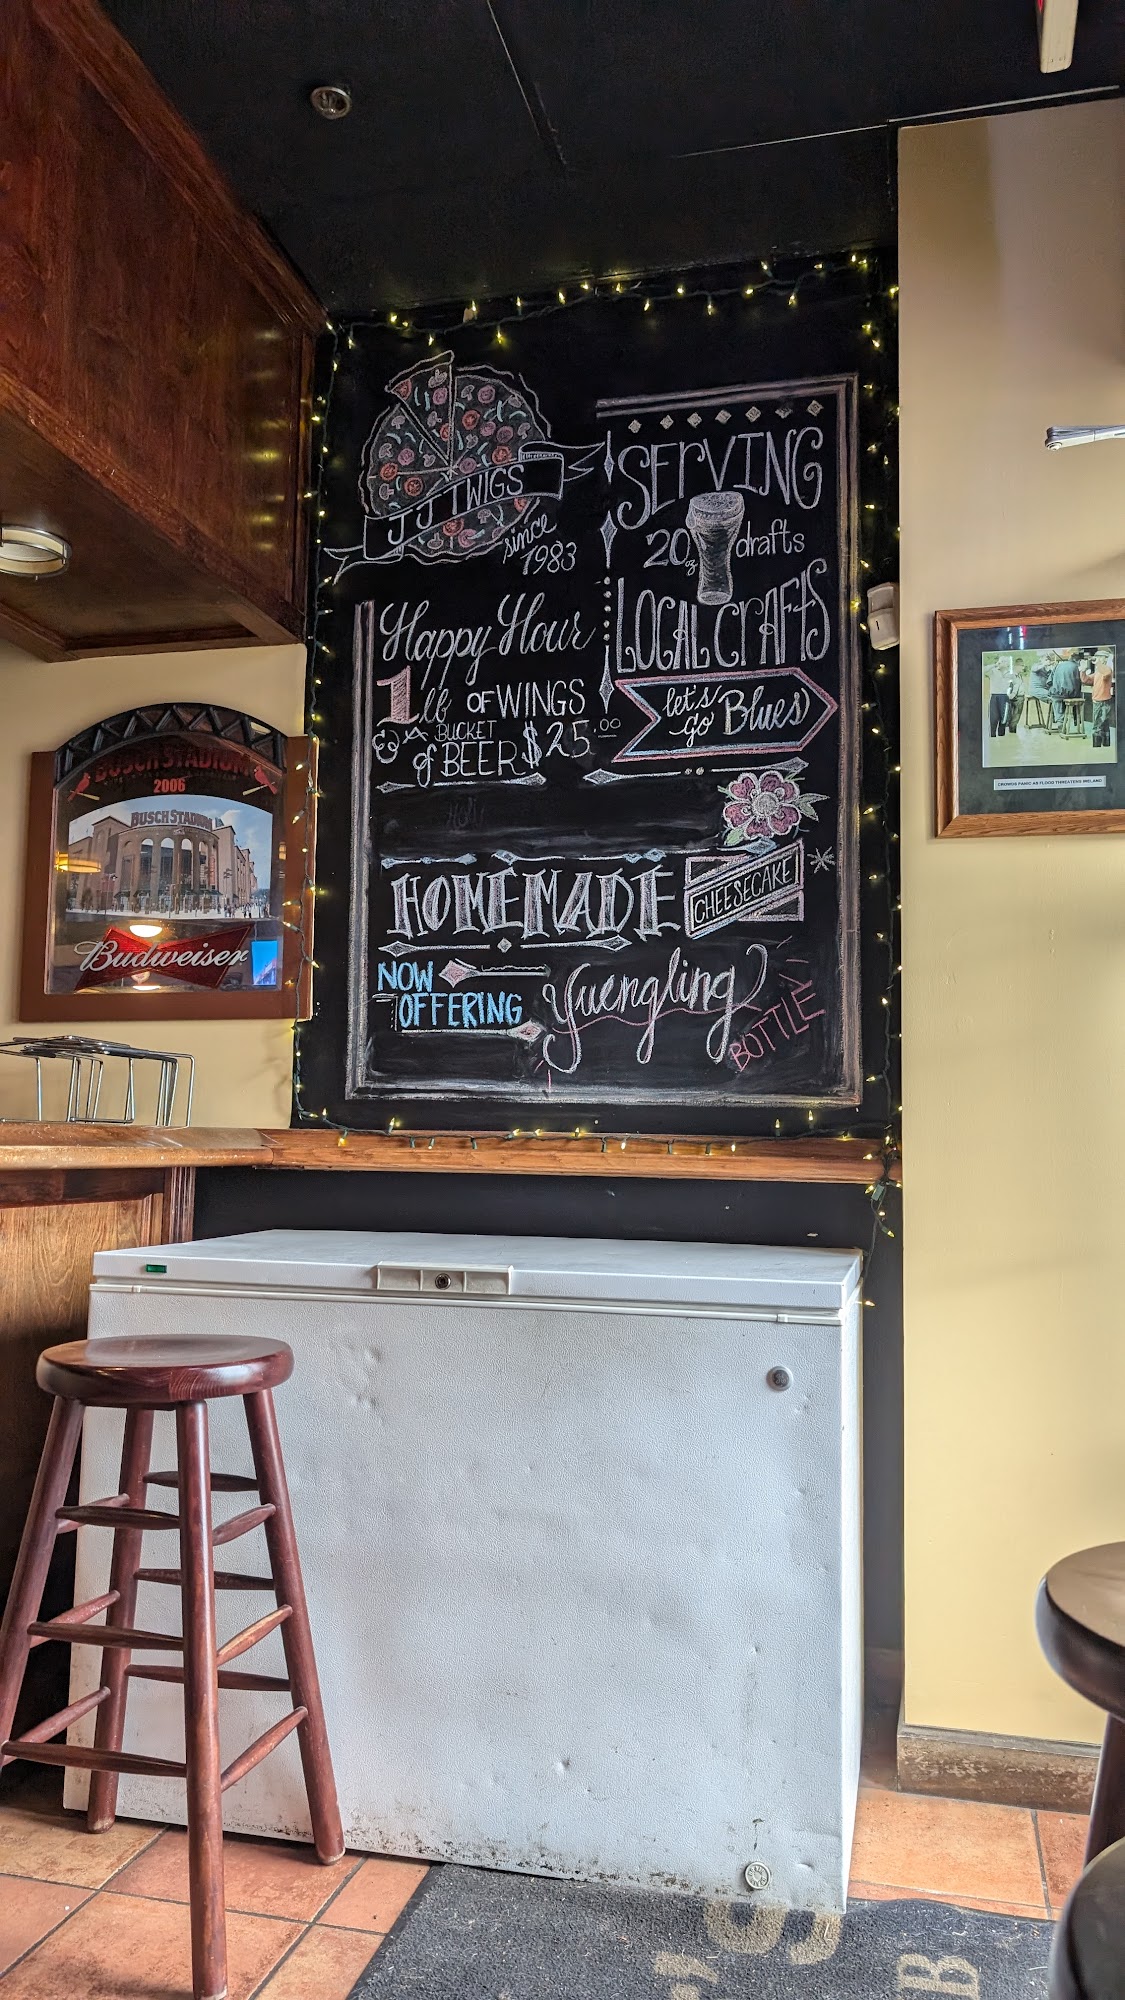 JJ TWIGS
since
1983
SERVING
20 oz drafts
LOCAL CRAFTS
let's go Blues
Happy Hour
1 lb OF WINGS
& A BUCKET of BEER $25.00
HOMEMADE CHEESECAKE!
NOW OFFERING Yuengling BOTTLE
BUSCH STADIUM
2006
BUSCH STADIUM
Budweiser
CROWDS PANIC AS FLOOD THREATENS IRELAND
'S
B